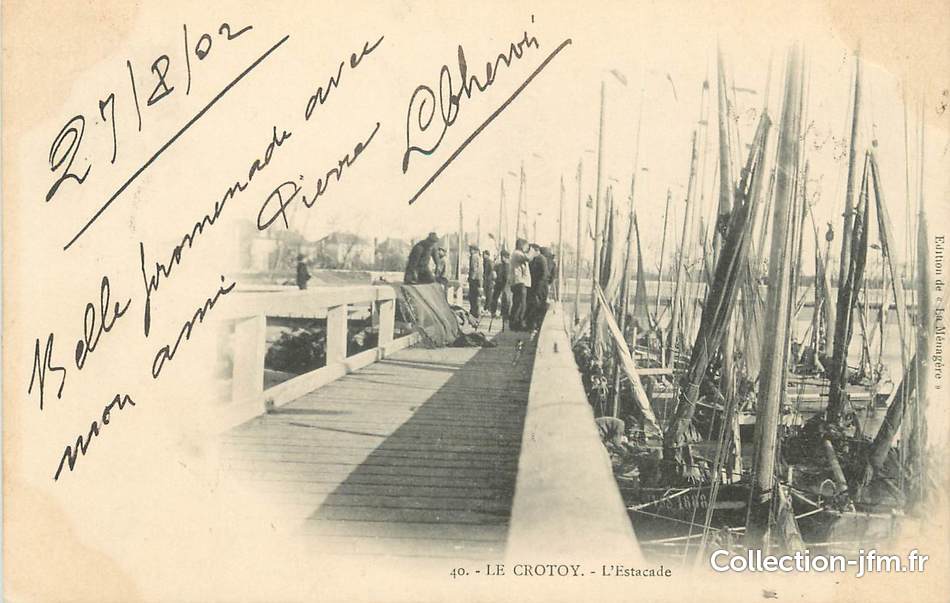 27/8/02
Belle promenade avec
mon ami Pierre
40. - LE CROTOY. - L'Estacade
Edition de « La Ménagère »
Collection-jfm.fr